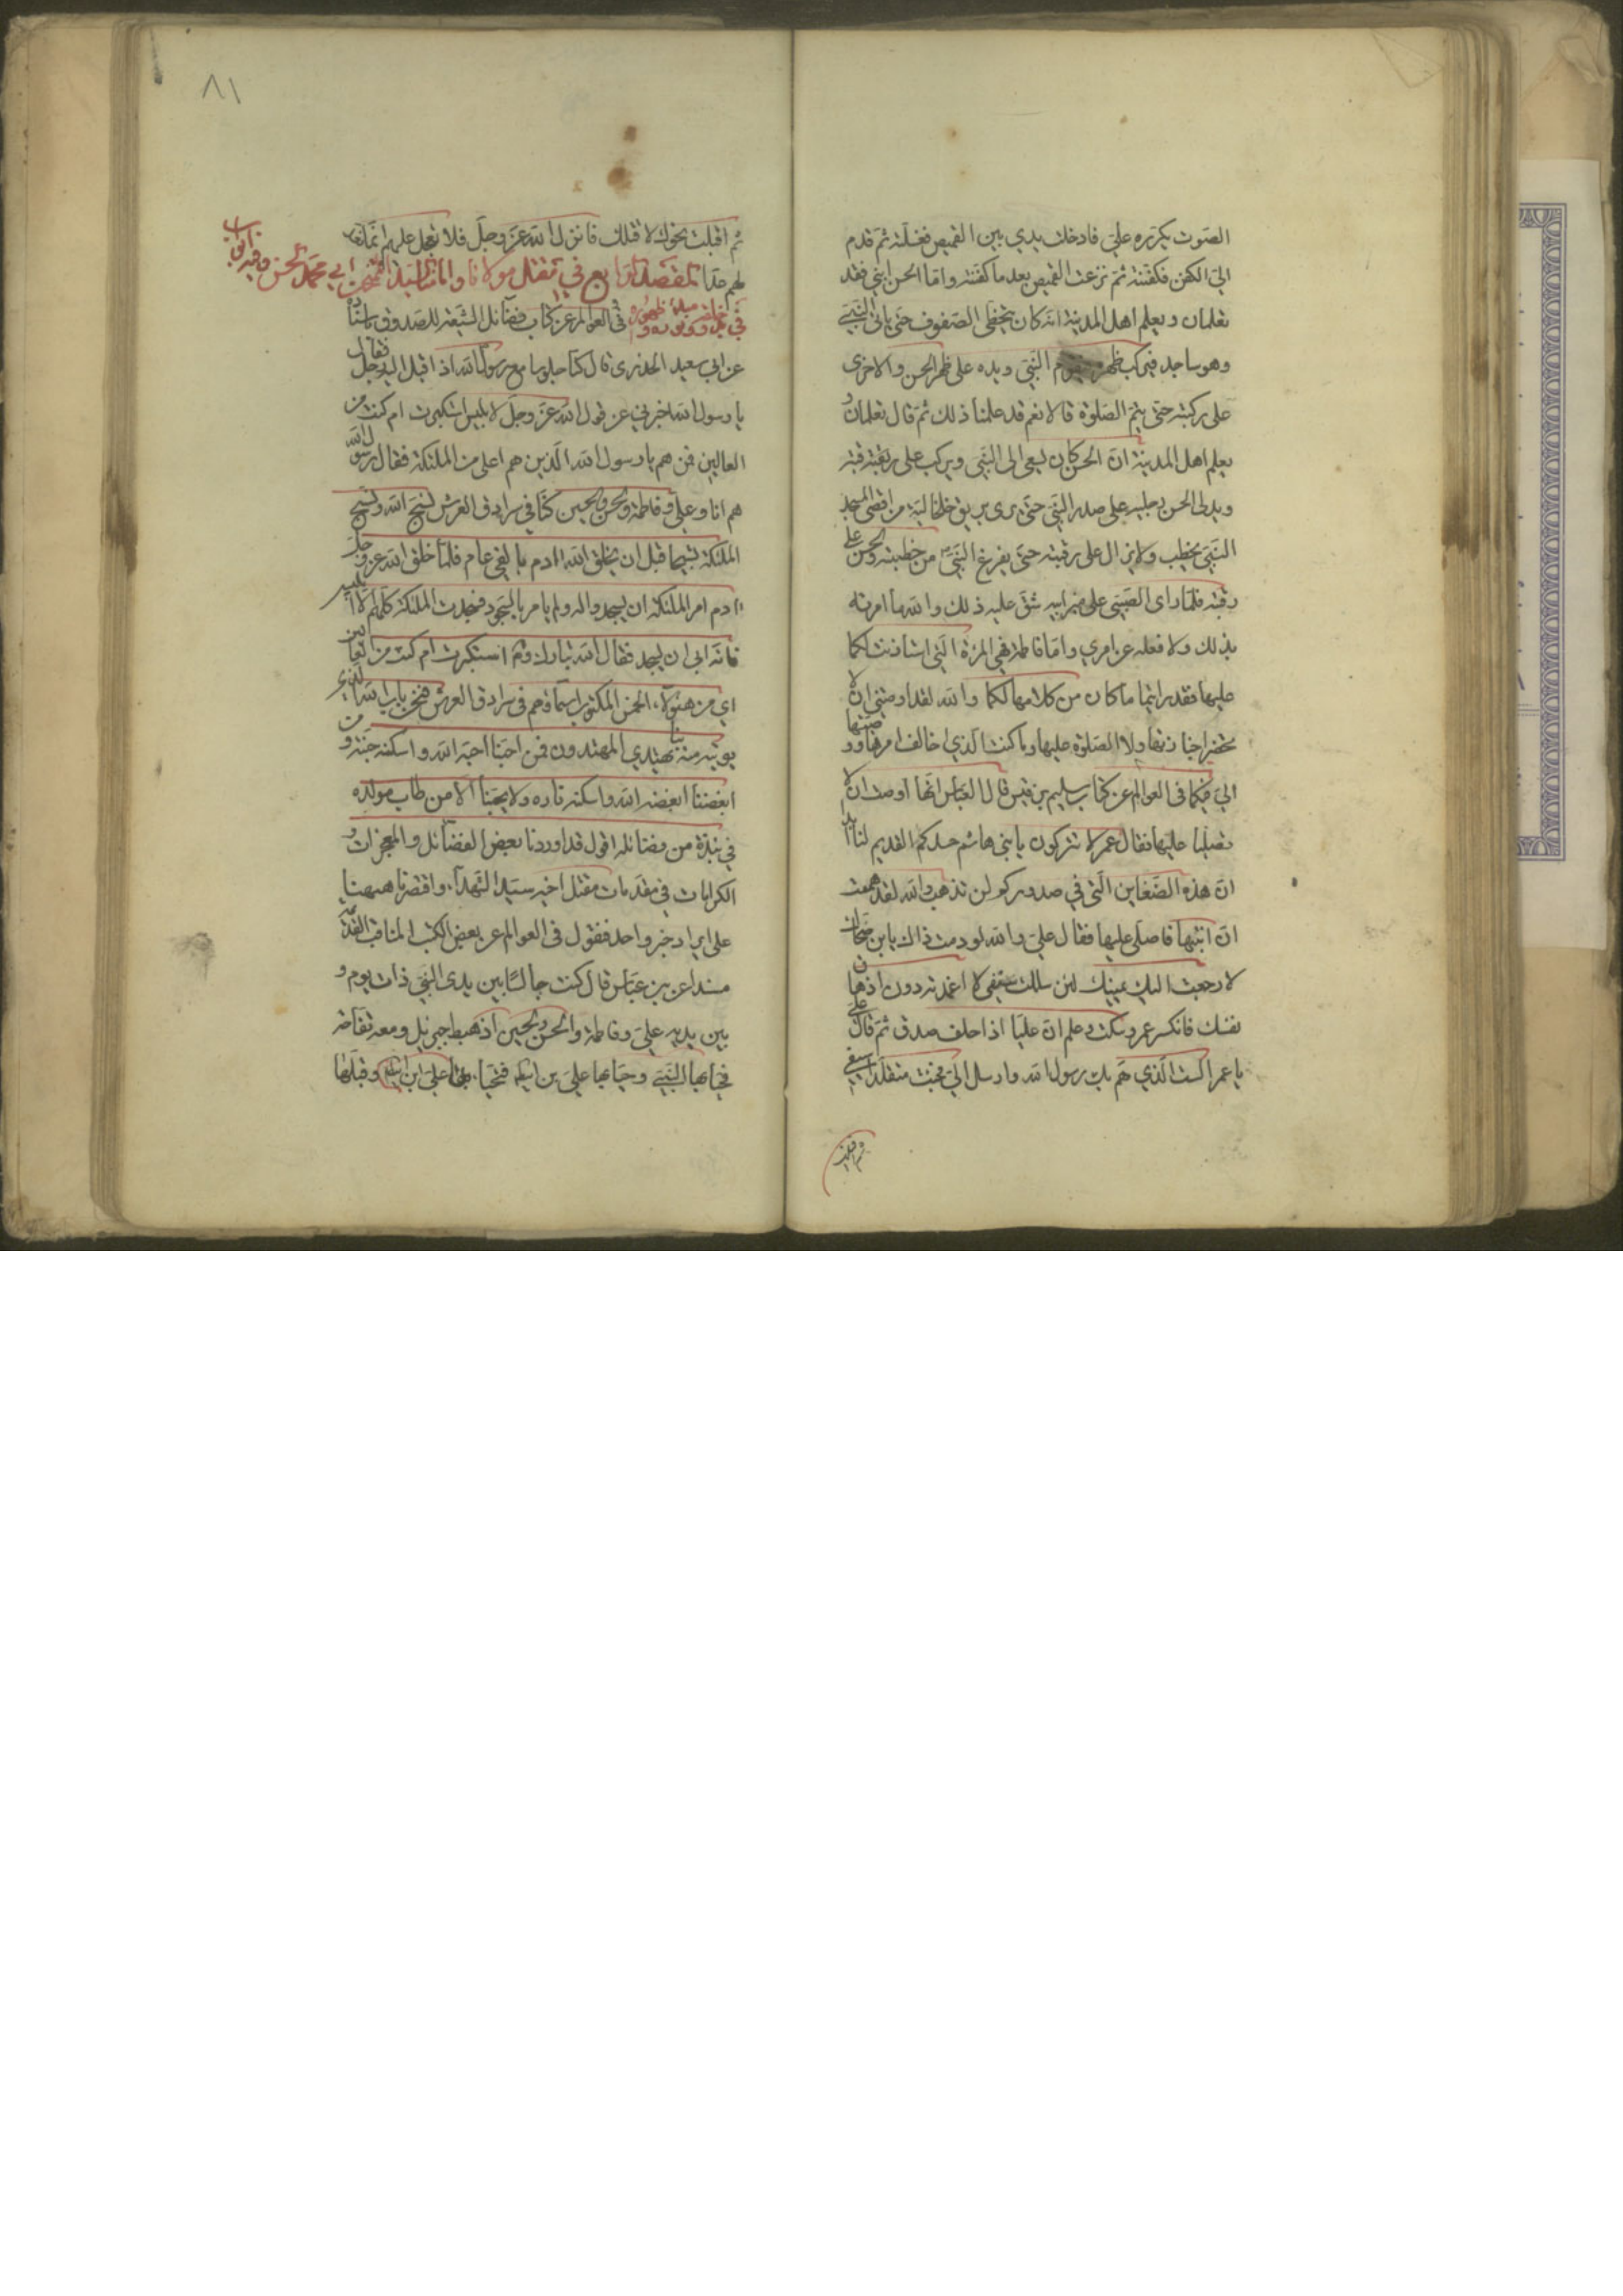 الصوت يكرره علي فادخلت يدي بين القميص فغسلته ثم قدم
الي الكفن فكفنته ثم نزعت القميص بعد ما كفنته واما الحسن ابني فقد
تعلمان ويعلم اهل المدينة انه كان يتخطى الصفوف حتى ياتى النبي
وهو ساجد فيركب ظهره فيقوم النبي ويده على ظهر الحسن والاخرى
على ركبته حتى يتم الصلوة قالا نعم قد علمنا ذلك ثم قال تعلمان و
يعلم اهل المدينة ان الحسن كان يسعى الى النبي ويركب على رقبته
ويدلى الحسن رجليه على صدر النبي حتى يرى بريق خلخاليه من اقصى المسجد
النبي يخطب ولا يزال على رقبته حتى يفرغ النبي من خطبته والحسن على
رقبته فلما راى الصبي على منبر ابيه شق عليه ذلك والله ما امرته
بذلك ولا فعله عن امري واما فاطمة فهي المرئة التي استاذنت لكما
عليها فقد رايتما ما كان من كلامها لكما والله لقد اوصتني ان لا
تحضرا جنازتها ولا الصلوة عليها وما كنت الذي اخالف امرها ووصيتها
الي فيكما فى العوالم عن كتاب سليم بن قيس قال العباس انها اوصت ان لا
تصليا عليها فقال عمر لا تتركون يا بني هاشم حسدكم القديم لنا ابدا
ان هذه الضغاين التي في صدوركم لن تذهب والله لقد هممت
ان انبشها فاصلي عليها فقال علي والله لو رمت ذاك يا بن صهاك
لا رجعت اليك يمينك لئن سللت سيفي لا اغمدته دون ازهاق
نفسك فانكسر عمر وسكت وعلم ان عليا اذا حلف صدق ثم قال علي
يا عمر الست الذي هم بك رسول الله وارسل الي فجئت متقلدا سيفي
ثم اقبلت
٨١
ثم اقبلت نحوك لاقتلك فانزل الله عز وجل فلا تعجل عليهم انما نعد
لهم عدا المقصد الرابع في مقتل مولانا والامام السيد الممتحن ابي محمد الحسن وفيه ابواب
فى العوالم عن كتاب فضائل الشيعة للصدوق باسناده
عن ابي سعيد الخدرى قال كنا جلوسا مع رسول الله اذ اقبل اليه رجل فقال
يا رسول الله اخبرني عن قول الله عز وجل لابليس استكبرت ام كنت من
العالين فمن هم يا رسول الله الذين هم اعلى من الملئكة فقال رسول الله
هم انا وعلي وفاطمة والحسن والحسين كنا في سرادق العرش نسبح الله وتسبح
الملئكة تسبيحنا قبل ان يخلق الله ادم بالفي عام فلما خلق الله عز وجل
ادم امر الملئكة ان يسجدوا له ولم يامرنا بالسجود فسجدت الملئكة كلهم الا ابليس
فانه ابى ان يسجد فقال الله تبارك وتع استكبرت ام كنت من العالين
اي من هؤلاء الخمس المكتوب اسماؤهم فى سرادق العرش فنحن باب الله الذي
يؤتى منه بنا يهتدي المهتدون فمن احبنا احبه الله واسكنه جنته ومن
ابغضنا ابغضه الله واسكنه ناره ولا يحبنا الا من طاب مولده
في نبذة من فضائله اقول قد اوردنا بعض الفضائل والمعجزات و
الكرامات في مقدمات مقتل اخيه سيد الشهداء واقتصرنا ههنا
على ايراد خبر واحد فنقول فى العوالم عن بعض الكتب المناقب القديمة
مسندا عن بن عباس قال كنت جالسا بين يدى النبي ذات يوم و
بين يديه علي وفاطمة والحسن والحسين اذ هبط جبرئيل ومعه تفاحة
فحيا بها النبي وحيا بها علي بن ابيطا فتحيا بها علي ابن ابيطا وقبلها